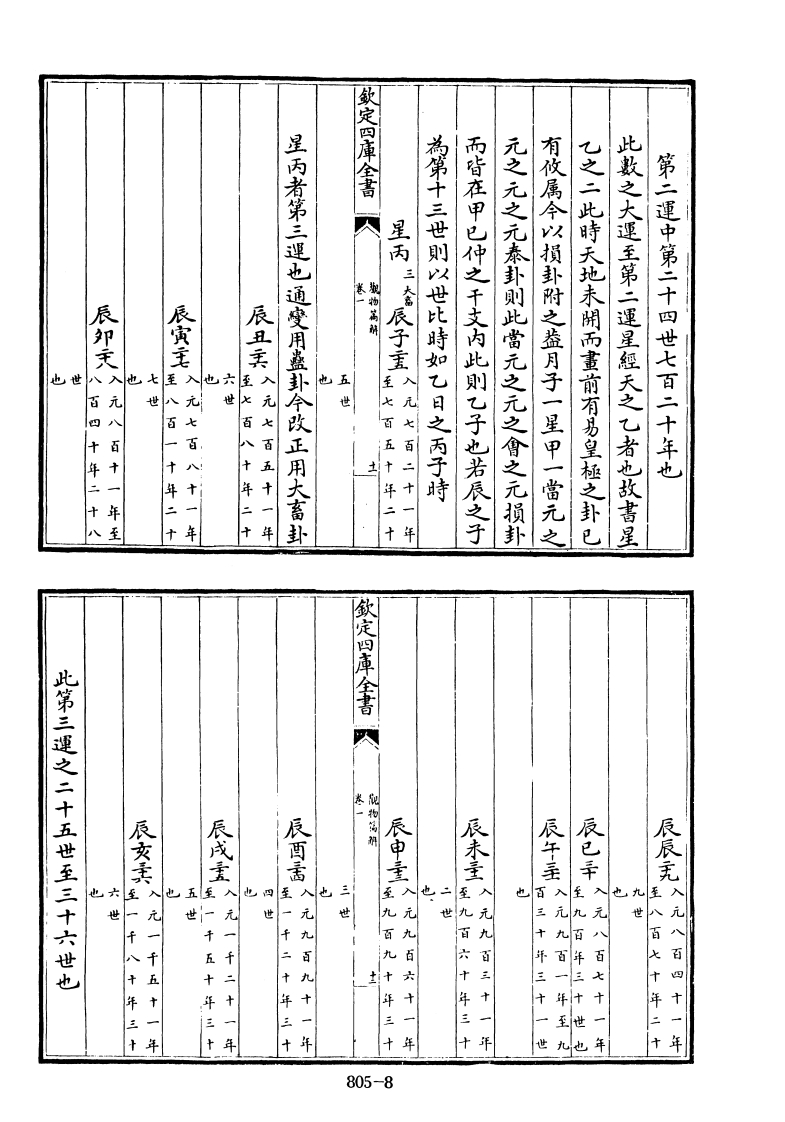 第二運中第二十四世七百二十年也
此數之大運至第二運星經天之乙者也故書星
乙之二此時天地未開而畫前有易皇極之卦已
有攸属今以損卦附之葢月子一星甲一當元之
元之元之元泰卦則此當元之元之會之元損卦
而皆在甲巳仲之干支内此則乙子也若辰之子
為第十三世則以世比時如乙日之丙子時
星丙三大畜辰子二十五入元七百二十一年
至七百五十年二十
欽定四庫全書
觀物篇解
卷一
十一
五世
也
星丙者第三運也通變用蠱卦今改正用大畜卦
辰丑二十六入元七百五十一年
至七百八十年二十
六世
也
辰寅二十七入元七百八十一年
至八百一十年二十
七世
也
辰卯二十八入元八百十一年至
八百四十年二十八
世
也
辰辰二十九入元八百四十一年
至八百七十年二十
九世
也
辰巳三十入元八百七十一年
至九百年三十世也
辰午三十一入元九百一年至九
百三十年三十一世
也
辰未三十二入元九百三十一年
至九百六十年三十
二世
也
辰申三十三入元九百六十一年
至九百九十年三十
欽定四庫全書
觀物篇解
卷一
十二
三世
也
辰酉三十四入元九百九十一年
至一千二十年三十
四世
也
辰戌三十五入元一千二十一年
至一千五十年三十
五世
也
辰亥三十六入元一千五十一年
至一千八十年三十
六世
也
此第三運之二十五世至三十六世也
805-8